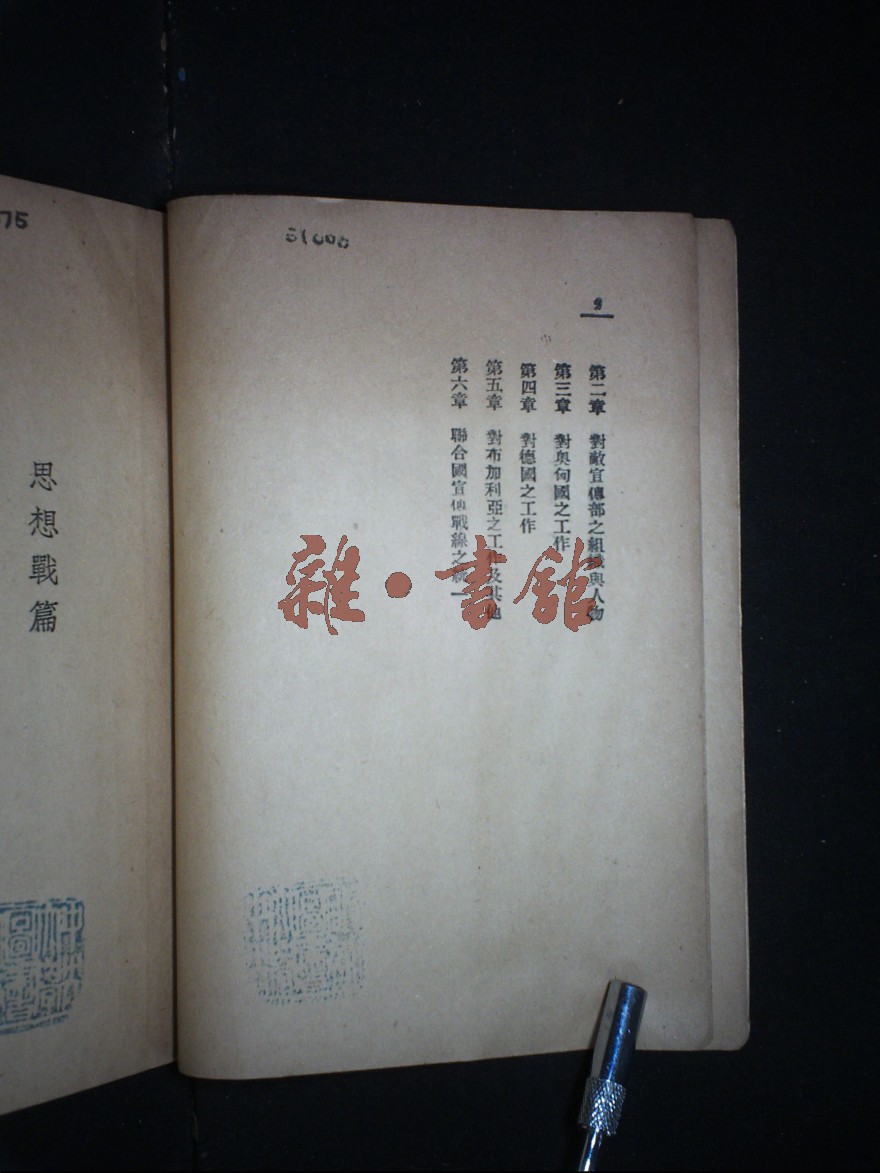 思想戰篇
75
第二章 對敵宣傳部之組織與人物
第三章 對奧匈國之工作
第四章 對德國之工作
第五章 對布加利亞之工作及其他
第六章 聯合國宣傳戰線之統一
雜·書館